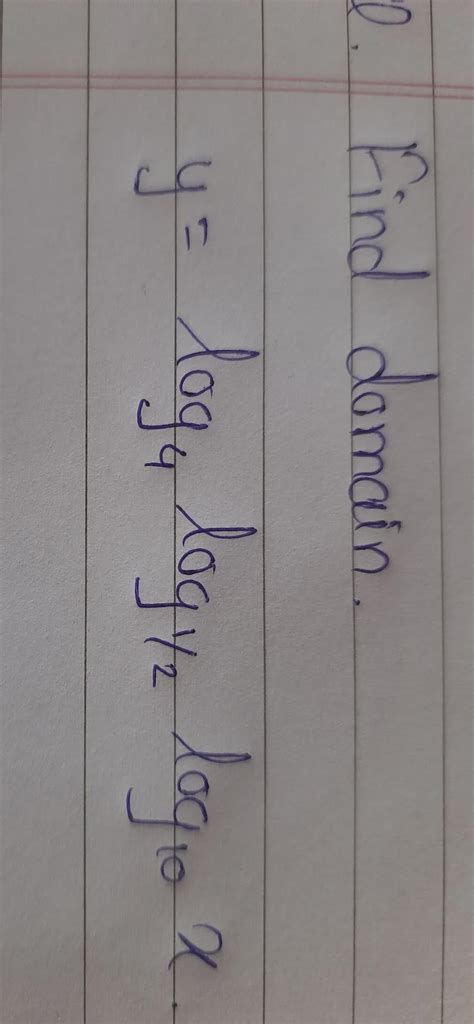 Find domain.
y = log₄ log₁/₂ log₁₀ x.